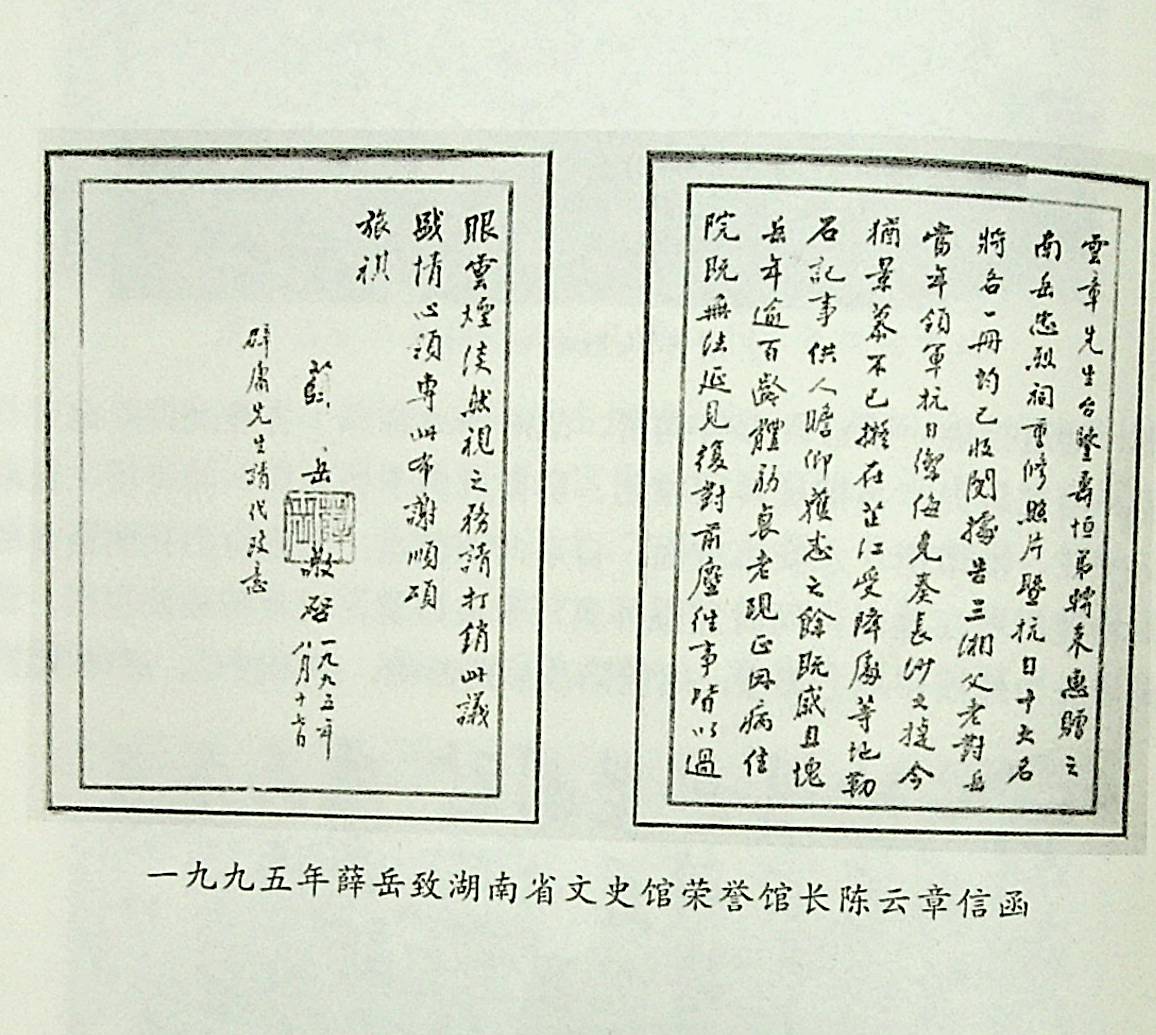 雲章先生台鑒壽恒弟轉來惠贈之
南岳忠烈祠重修照片暨抗日十大名
將各一冊均已收閱據告三湘父老對岳
當年領軍抗日禦侮見奏長沙之捷今
猶景慕不已擬在芷江受降處等地勒
石記事供人瞻仰獲悉之餘既感且愧
岳年逾百齡體弱衰老現正因病住
院既無法延見復對前塵往事皆以過
眼雲煙淡然視之務請打銷此議
盛情心領專此布謝順頌
旅祺
薛岳敬啓一九九五年
八月十七日
辟庸先生請代致意
一九九五年薛岳致湖南省文史馆荣誉馆长陈云章信函